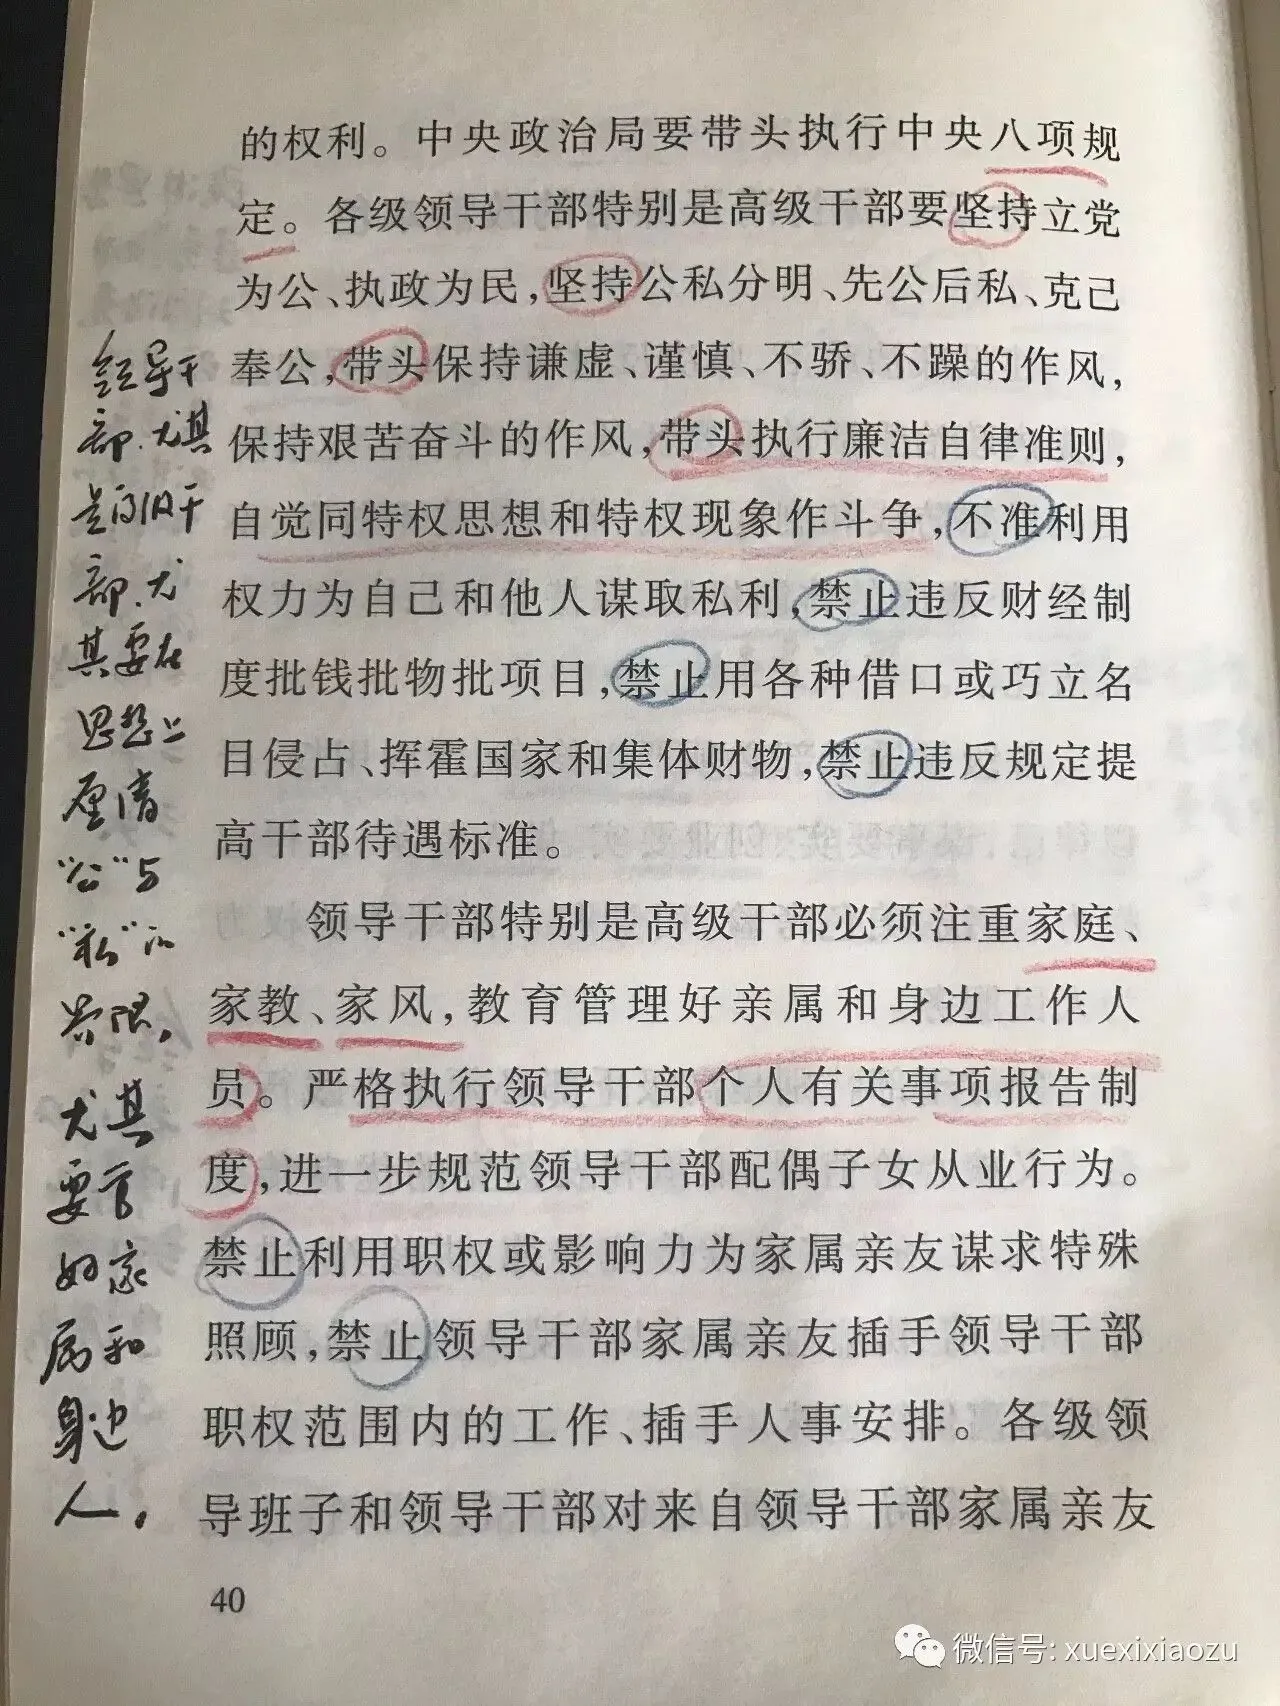 的权利。中央政治局要带头执行中央八项规
定。各级领导干部特别是高级干部要坚持立党
为公、执政为民，坚持公私分明、先公后私、克己
奉公，带头保持谦虚、谨慎、不骄、不躁的作风，
保持艰苦奋斗的作风，带头执行廉洁自律准则，
自觉同特权思想和特权现象作斗争，不准利用
权力为自己和他人谋取私利，禁止违反财经制
度批钱批物批项目，禁止用各种借口或巧立名
目侵占、挥霍国家和集体财物，禁止违反规定提
高干部待遇标准。
领导干部特别是高级干部必须注重家庭、
家教、家风，教育管理好亲属和身边工作人
员。严格执行领导干部个人有关事项报告制
度，进一步规范领导干部配偶子女从业行为。
禁止利用职权或影响力为家属亲友谋求特殊
照顾，禁止领导干部家属亲友插手领导干部
职权范围内的工作、插手人事安排。各级领
导班子和领导干部对来自领导干部家属亲友
40
领导干
部，尤其
是高级干
部，尤
其要在
思想上
厘清
“公”与
“私”的
界限，
尤其
要管
好家
属和
身边
人。
微信号: xuexixiaozu